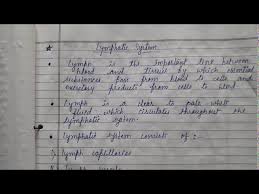 Lymphatic System
Lymph is the important link between
blood and tissue by which essential
substances pass from blood to cells and
excretory products from cells to blood
Lymph is a clear to pale white
fluid which circulates throughout the
lymphatic system.
Lymphatic system consists of :-
1) Lymph capillaries